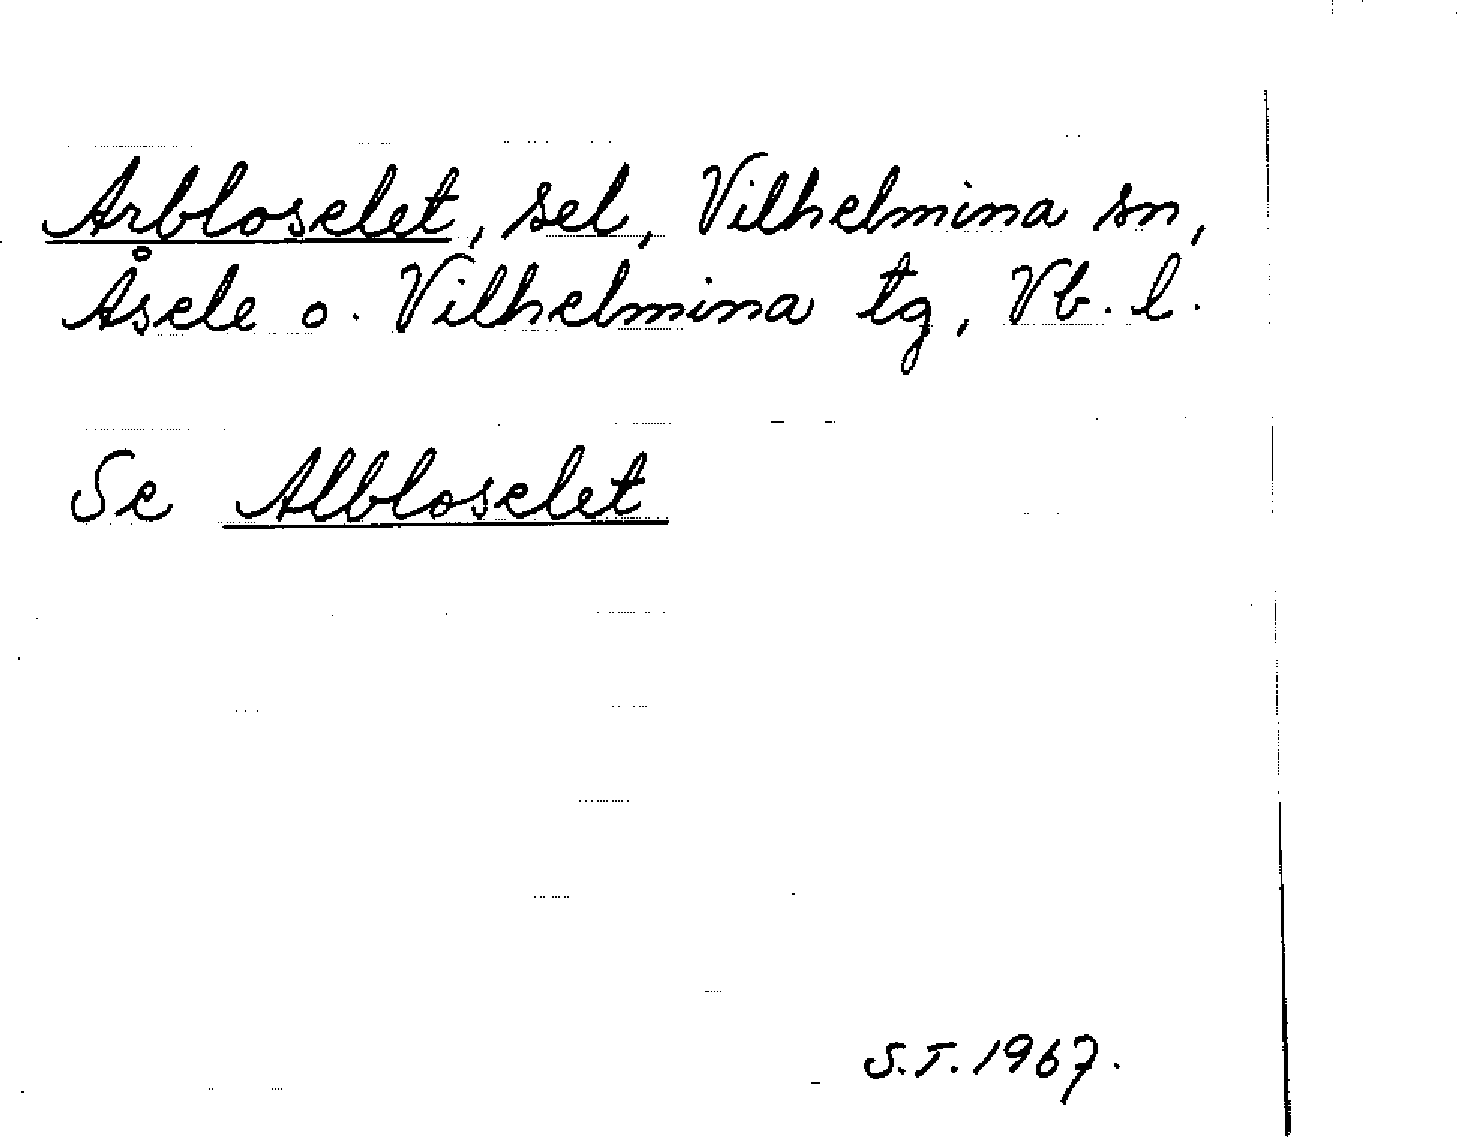 Arbloselet, sel, Vilhelmina sn,
Åsele o. Vilhelmina tg, Vb. l.
Se Albloselet
S.T. 1967.